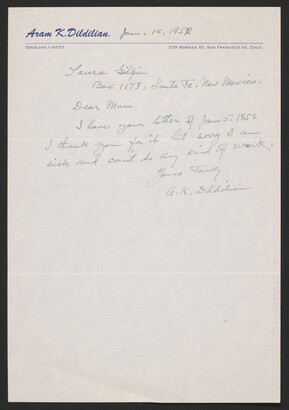 Aram K. Dildilian. Jan. 14, 1952
OVERLAND 1-6033 339 NORIEGA ST. SAN FRANCISCO 22, CALIF.
Laura Gilpin
Box 1173, Santa Fe. New Mexico.
Dear Mam
I have your letter of Jan 5. 1952
I thank you for it but sorry I am
sick and can't do any kind of work.
Yours Truly
A.K. Dildilian